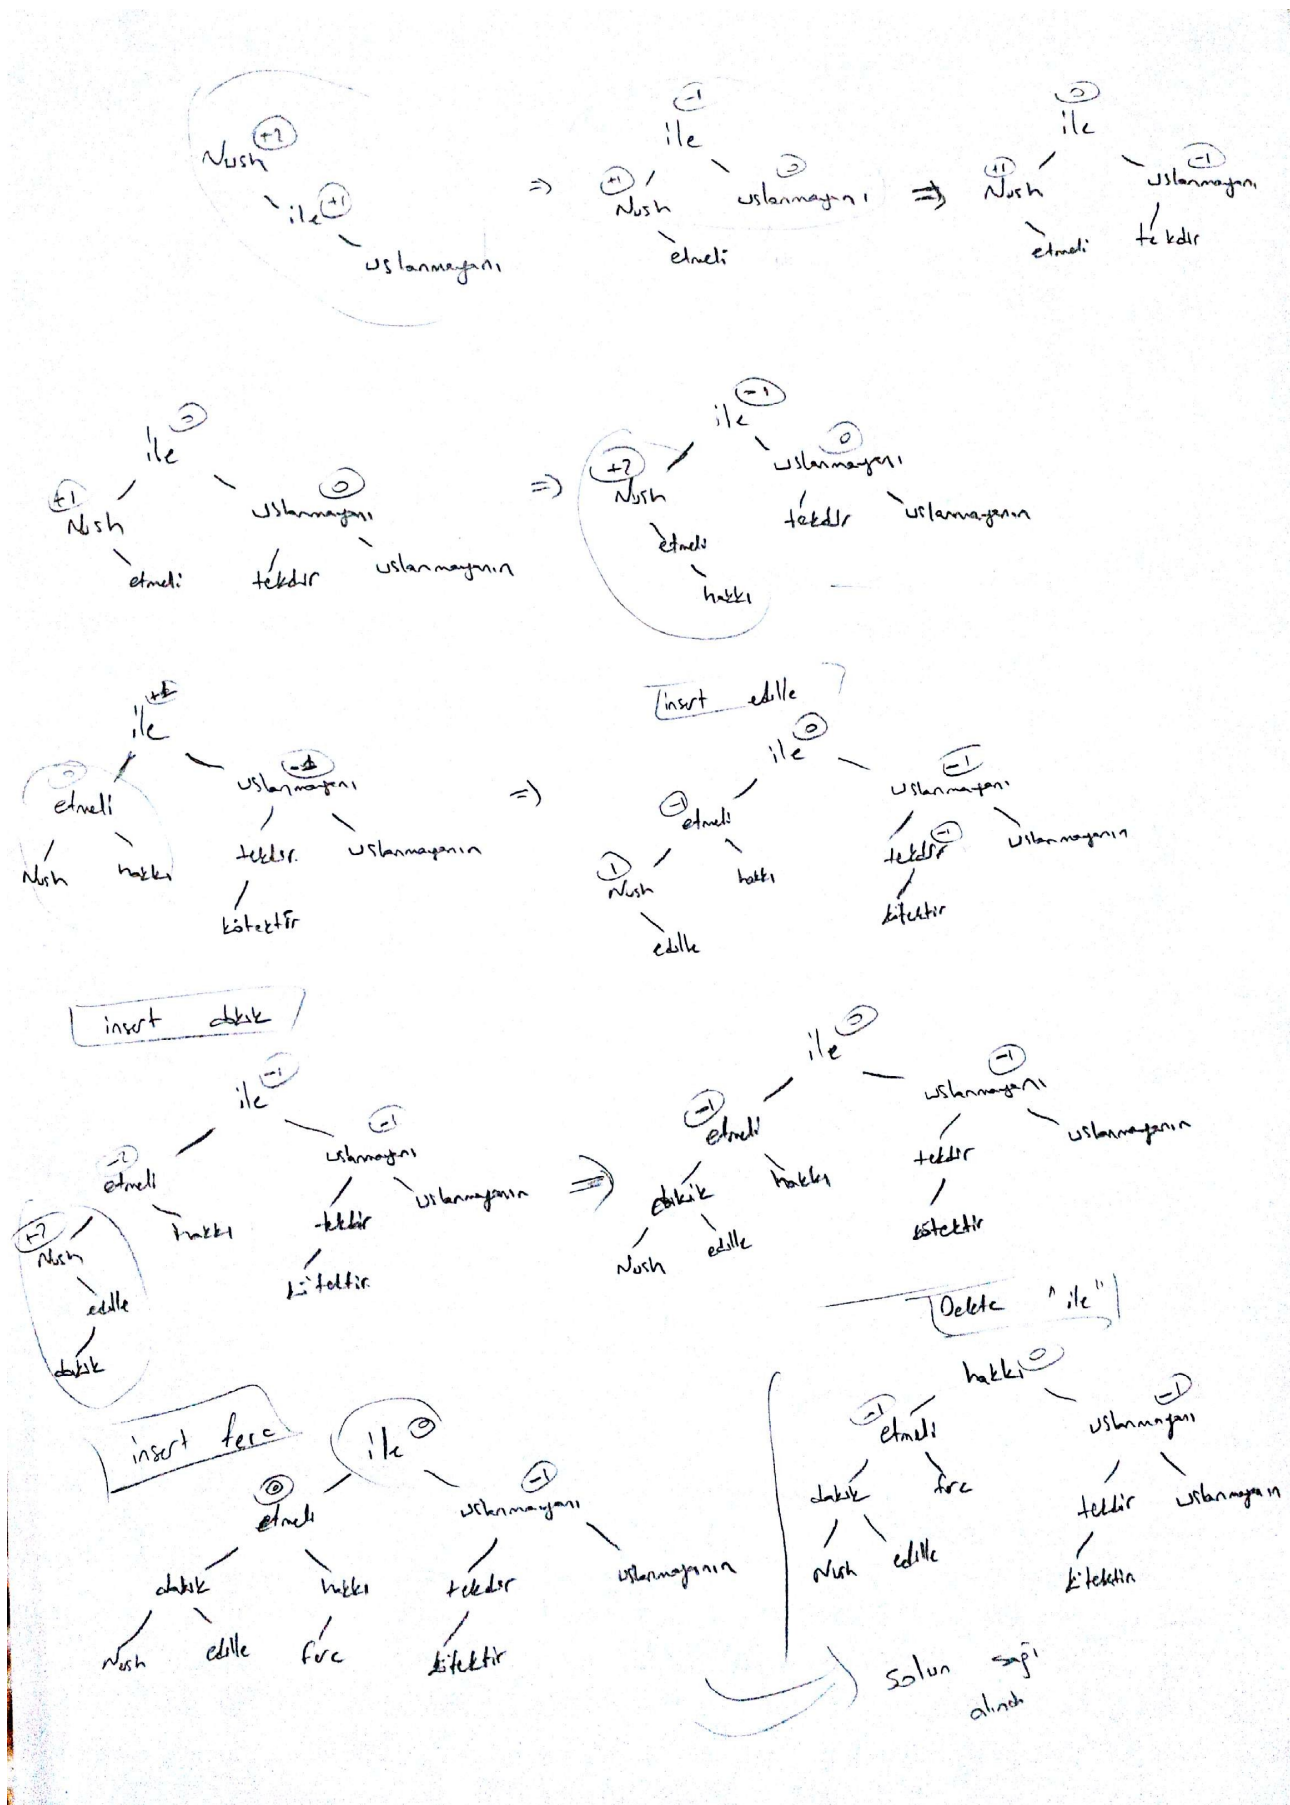 +2
Nush
+1
ile
uslanmayanı
⇒
-1
ile
+1
0
Nush
uslanmayanı
etmeli
⇒
0
ile
+1
-1
Nush
uslanmayanı
etmeli
tekdir
0
ile
+1
0
Nush
uslanmayanı
etmeli
tekdir
uslanmayanın
⇒
-1
ile
+2
0
Nush
uslanmayanı
etmeli
tekdir
uslanmayanın
hakkı
ile
0
-1
etmeli
uslanmayanı
Nush
hakkı
tekdir
uslanmayanın
kötektir
⇒
insert edille
0
ile
-1
-1
etmeli
uslanmayanı
1
-1
Nush
hakkı
tekdir
uslanmayanın
edille
kötektir
insert dakik
-1
ile
-2
-1
etmeli
uslanmayanı
+2
Nush
hakkı
tekdir
uslanmayanın
edille
kötektir
dakik
⇒
0
ile
-1
-1
etmeli
uslanmayanı
dakik
hakkı
tekdir
uslanmayanın
Nush
edille
kötektir
insert ferc
0
ile
0
-1
etmeli
uslanmayanı
dakik
hakkı
tekdir
uslanmayanın
Nush
edille
ferc
kötektir
Delete "ile"
0
hakkı
-1
-1
etmeli
uslanmayanı
dakik
ferc
tekdir
uslanmayanın
Nush
edille
kötektir
solun sağı
alındı